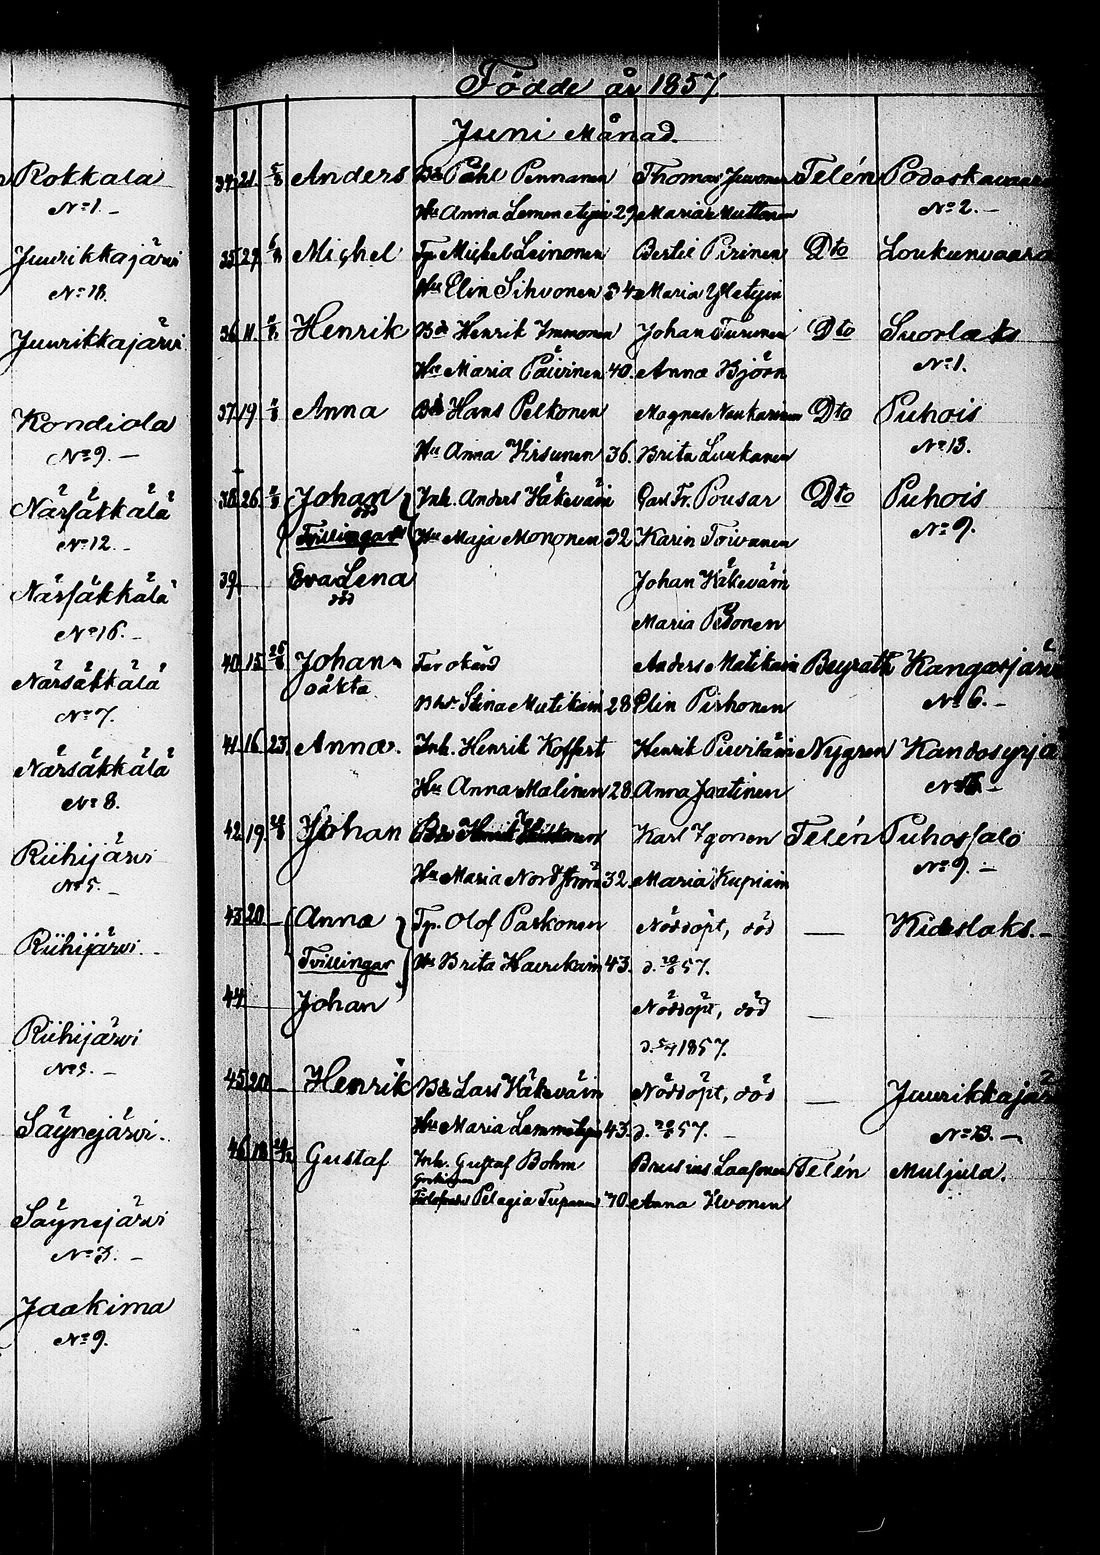 Rokkala
No 1. -
Juurikkajärvi
No 18.
Juurikkajärvi
Kondiola
No 9. -
Närsäkkälä
No 12. -
Närsäkkälä
No 16. -
Närsäkkälä
No 7.
Närsäkkälä
No 8.
Riihijärvi
No 5. -
Riihijärvi. -
Riihijärvi
No 5. -
Säynejärvi.
Säynejärvi
No 3. -
Jaakima
No 9.
Födde år 1857
Juni Månad.
34 21. Anders Bd Påhl Pennanen Thomas Juvonen Telén
Hu Anna 29 Maria Muttonen No 2. -
35 27. Michel Tp Michel Leinonen Bertil Pirinen Dto Loukunvaara
Hu Elin Sihvonen 34 Maria
36 11. Henrik Bd Henrik Immonen Johan Turunen Dto Suorlaks
Hu Maria Päivinen 40. Anna Björn No 1.
37 19. Anna Bd Hans Pelkonen Magnus Dto Puhois
Hu Anna Hirvonen 36. Brita Luukanen No 13.
38 26. Johan död Inh. Anders Käkeväin Carl Fr. Pousar Dto Puhois
Tvillingar Hu Maja Mononen 32 Karin Toivanen No 9.
39. Eva Lena död Johan Käkeväin
Maria
40 15. Johan Anders Matikain Beyrath Kangasjärvi
oäkta Stina Mutikain 28 Elin Pirhonen No 6. -
41 16. 23. Anna. Inh. Henrik Koffert Henrik Nygren
Hu Anna Malinen 28. Anna Jaatinen
42. 19. Johan Karl Igonen Telén Puhossalo
Hu Maria Nordström 32. Maria Kupiain No 9. -
43 20. Anna Tp. Olof Paskonen Nöddöpt, död — Kideslaks. -
Tvillingar Hu Brita 43.
44 Johan Nöddöpt, död —
1857.
45 20 - Henrik Bd Lars Käkeväin Nöddöpt, död — Juurikkajärvi
Hu Maria 43. No 13. -
46 18 Gustaf Inh. Gustaf Bohm Telén Muljula.
Pelagia 40. Anna Ilvonen